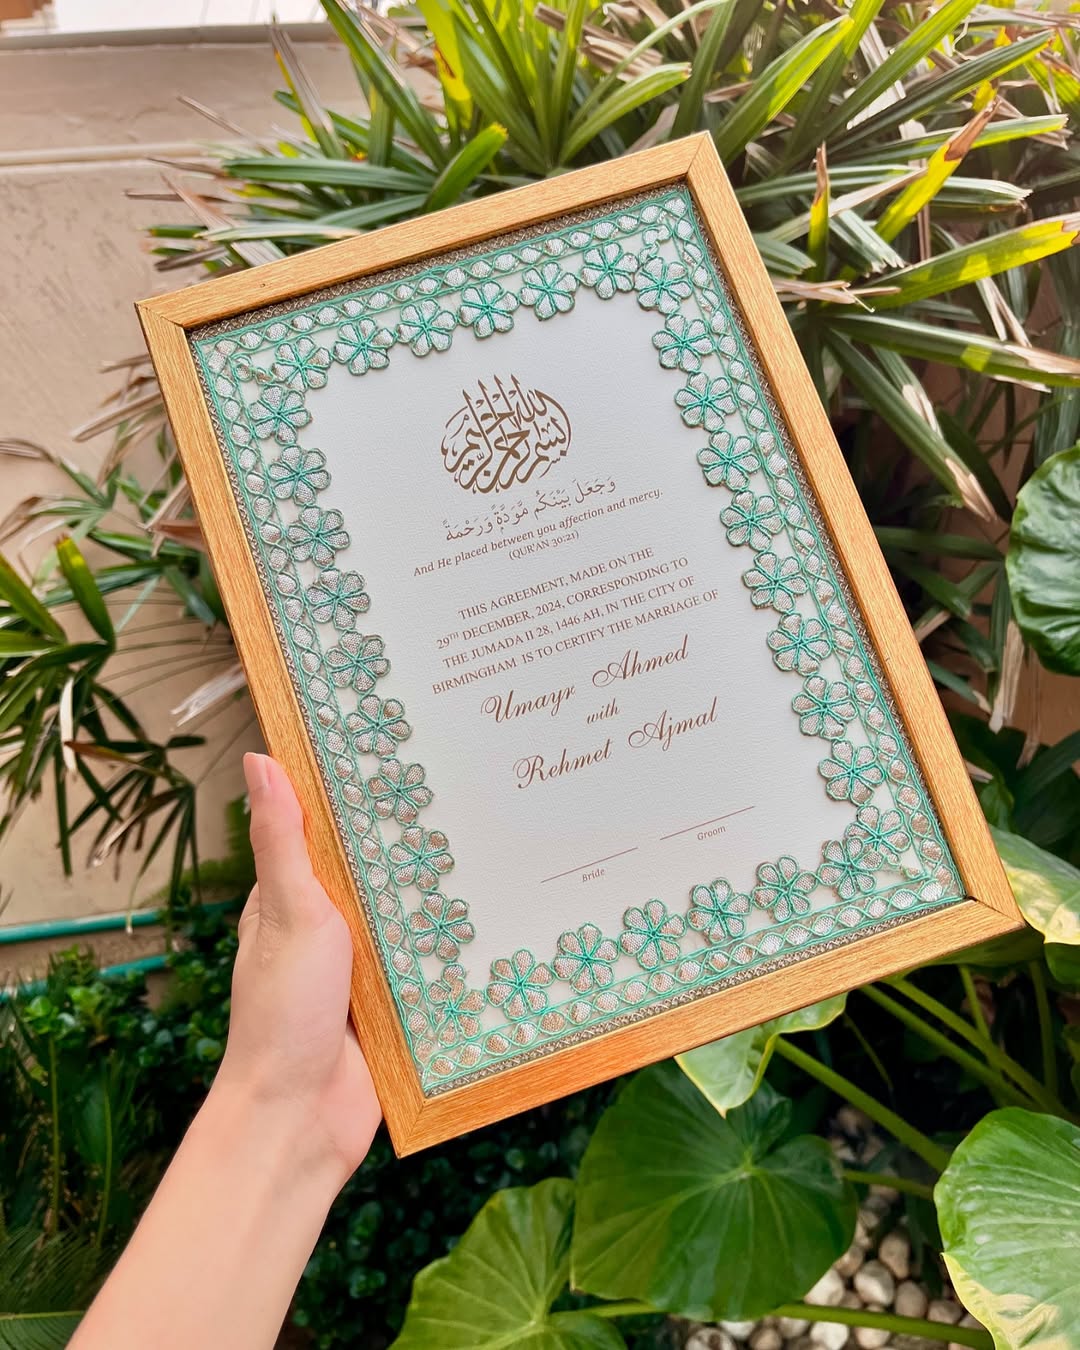 بسم الله الرحمن الرحيم
وَجَعَلَ بَيْنَكُم مَّوَدَّةً وَرَحْمَةً
And He placed between you affection and mercy.
(QUR'AN 30:21)
THIS AGREEMENT, MADE ON THE
29TH DECEMBER, 2024, CORRESPONDING TO
THE JUMADA II 28, 1446 AH, IN THE CITY OF
BIRMINGHAM IS TO CERTIFY THE MARRIAGE OF
Umayr Ahmed
with
Rehmet Ajmal
Bride
Groom